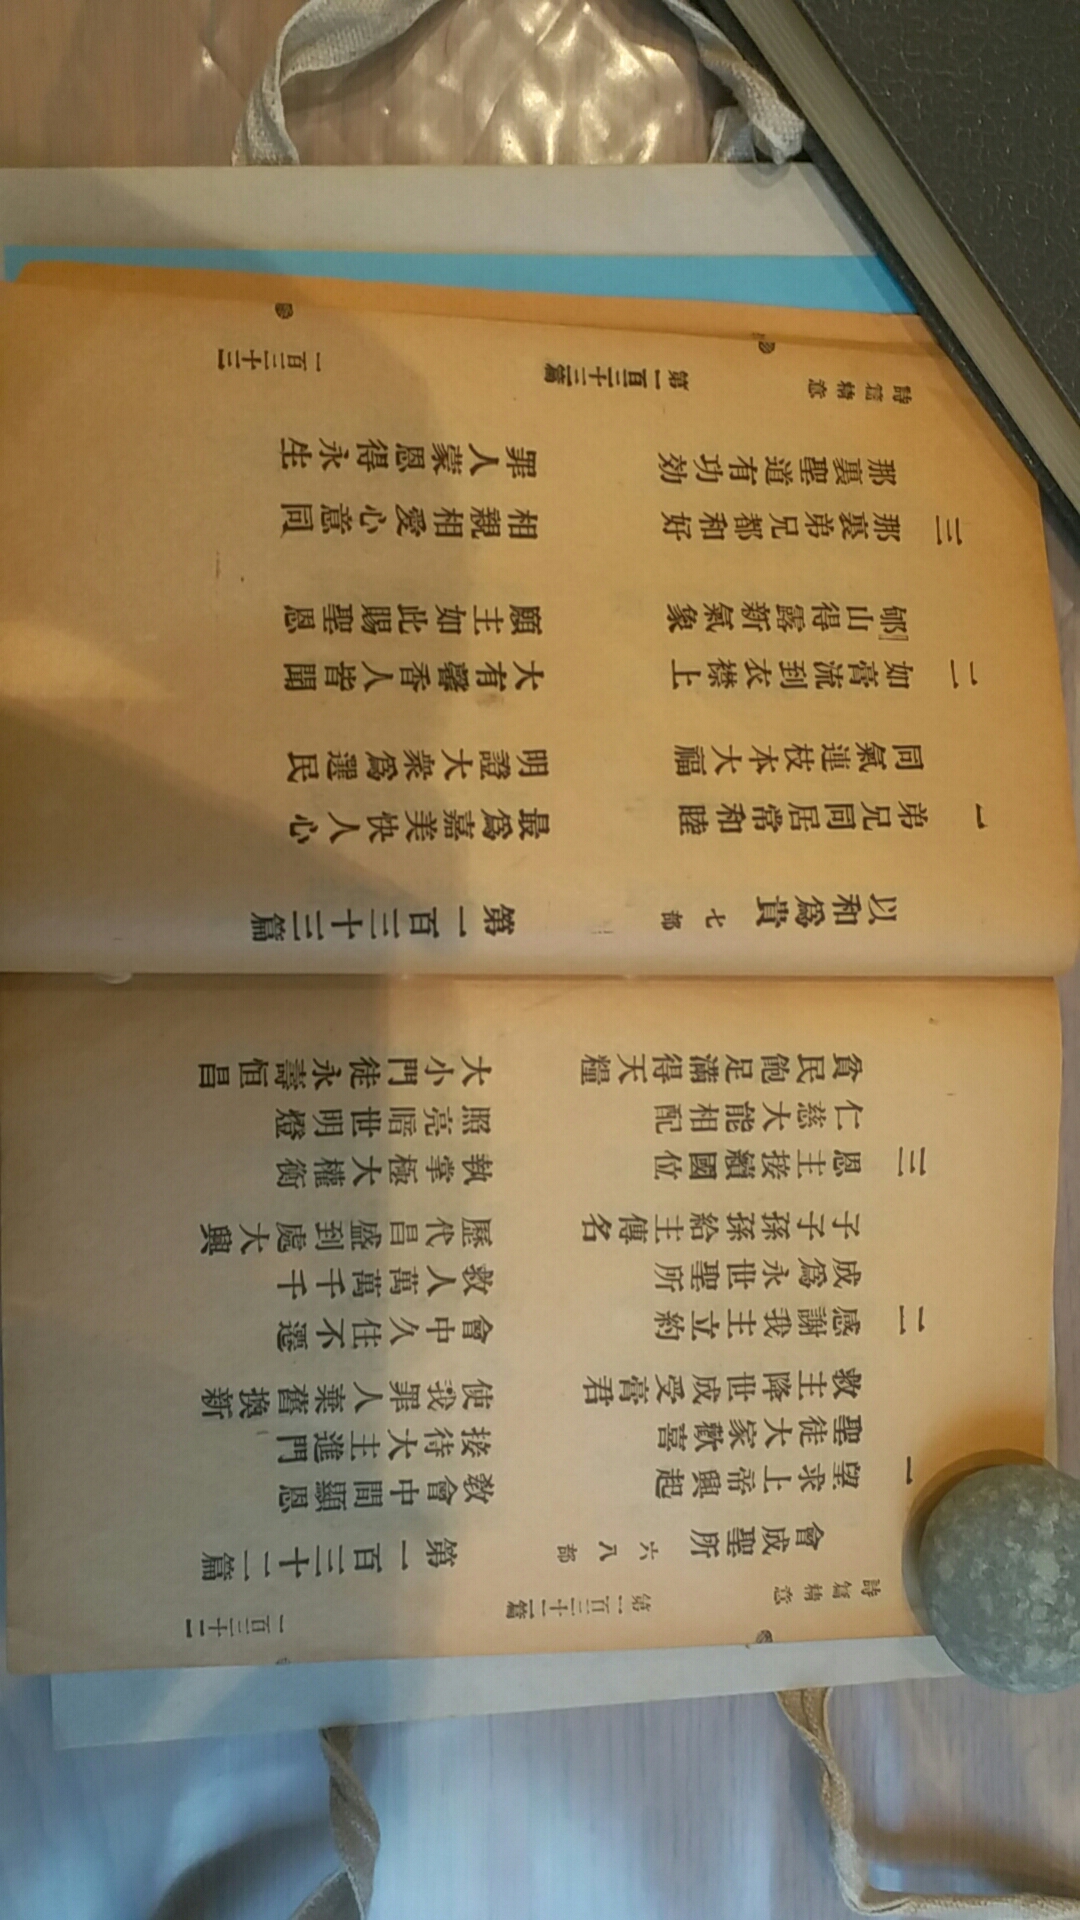 詩篇精意 第一百三十二篇 一百三十二
會成聖所 六八部 第一百三十二篇
一 望求上帝興起 教會中間顯恩
聖徒大家歡喜 接待大主進門
救主降世成受膏君 使我罪人棄舊換新
二 感謝我主立約 會中久住不遷
成爲永世聖所 救人萬萬千千
子子孫孫給主傳名 歷代昌盛到處大興
三 恩主接纘國位 執掌極大權衡
仁慈大能相配 照亮暗世明燈
貧民飽足滿得天糧 大小門徒永壽恒昌
以和爲貴 七部 第一百三十三篇
一 弟兄同居常和睦 最爲嘉美快人心
同氣連枝本大福 明證大衆爲選民
二 如膏流到衣襟上 大有馨香人皆聞
郇山得露新氣象 願主如此賜聖恩
三 那裏弟兄都和好 相親相愛心意同
那裏聖道有功効 罪人蒙恩得永生
詩篇精意 第一百三十三篇 一百三十三